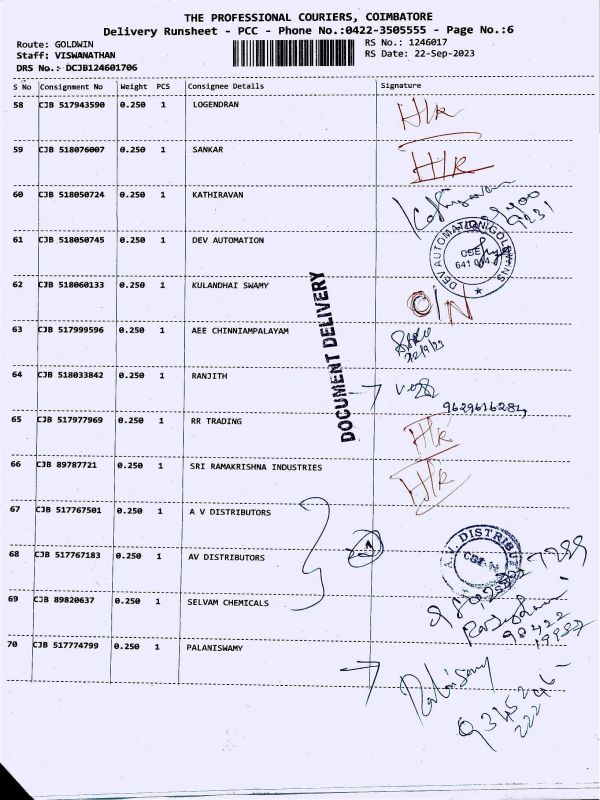 THE PROFESSIONAL COURIERS, COIMBATORE
Delivery Runsheet - PCC - Phone No.:0422-3505555 - Page No.:6
Route: GOLDWIN
Staff: VISWANATHAN
DRS No.: DCJB124601706
RS No.: 1246017
RS Date: 22-Sep-2023
S No Consignment No Weight PCS Consignee Details Signature
58 CJB 517943590 0.250 1 LOGENDRAN
59 CJB 518076007 0.250 1 SANKAR
60 CJB 518050724 0.250 1 KATHIRAVAN
9231
61 CJB 518050745 0.250 1 DEV AUTOMATION
DEV AUTOMATION
62 CJB 518060133 0.250 1 KULANDHAI SWAMY
DOCUMENT DELIVERY
63 CJB 517999596 0.250 1 AEE CHINNIAMPALAYAM
64 CJB 518033842 0.250 1 RANJITH
9629616284
65 CJB 517977969 0.250 1 RR TRADING
66 CJB 89787721 0.250 1 SRI RAMAKRISHNA INDUSTRIES
67 CJB 517767501 0.250 1 A V DISTRIBUTORS
68 CJB 517767183 0.250 1 AV DISTRIBUTORS
69 CJB 89820637 0.250 1 SELVAM CHEMICALS
98422
70 CJB 517774799 0.250 1 PALANISWAMY